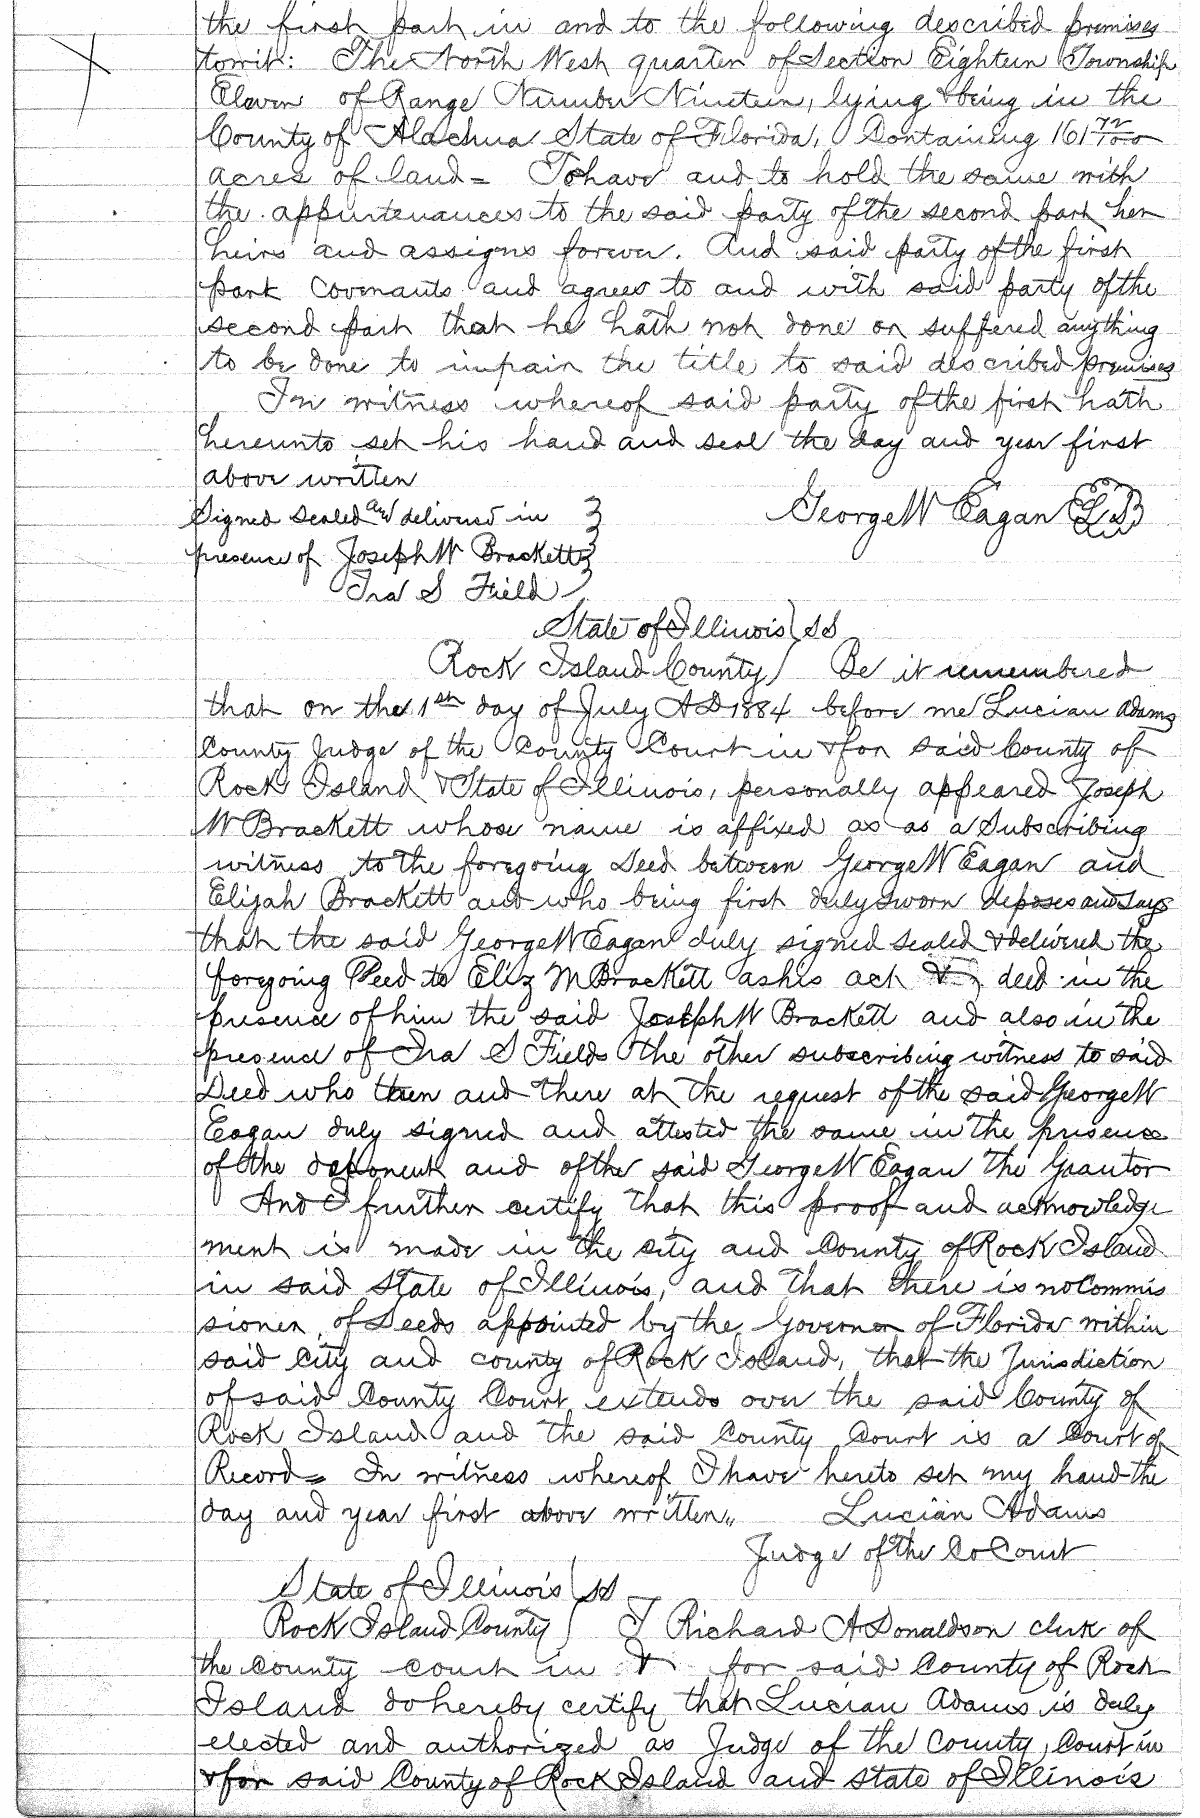 the first part in and to the following described premises
towit: The North West quarter of Section Eighteen Township
Eleven of Range Number Nineteen, lying & being in the
County of Alachua State of Florida, Containing 161 72/100
acres of land = To have and to hold the same with
the appurtenances to the said party of the second part her
heirs and assigns forever. And said party of the first
part covenants and agrees to and with said party of the
second part that he hath not done or suffered anything
to be done to impair the title to said described premises
In witness whereof said party of the first hath
hereunto set his hand and seal the day and year first
above written
Signed sealed and delivered in
George W Eagan L.S
presence of Joseph W Brackett
Ira S Field
State of Illinois ) SS
Rock Island County ) Be it remembered
that on the 1st day of July A D 1884 before me Lucian Adams
County Judge of the County Court in & for said County of
Rock Island & State of Illinois, personally appeared Joseph
W Brackett whose name is affixed as as a Subscribing
witness to the foregoing Deed between George W Eagan and
Elijah Brackett and who being first duly sworn deposes and says
that the said George W Eagan duly signed sealed & delivered the
foregoing Deed to Eliz M Brackett as his act & deed in the
presence of him the said Joseph W Brackett and also in the
presence of Ira S Fields the other subscribing witness to said
Deed who then and there at the request of the said George W
Eagan duly signed and attested the same in the presence
of the deponent and of the said George W Eagan the Grantor
And I further certify that this proof and acknowledge
ment is made in the city and County of Rock Island
in said State of Illinois, and that there is no Commis
sioner of Deeds appointed by the Governor of Florida within
said City and county of Rock Island, that the Jurisdiction
of said County Court extends over the said County of
Rock Island and the said County Court is a Court of
Record = In witness whereof I have hereto set my hand the
day and year first above written,, Lucian Adams
Judge of the Co Court
State of Illinois ) SS
Rock Island County ) I Richard A Donaldson clerk of
the County court in & for said County of Rock
Island do hereby certify that Lucian Adams is duly
elected and authorized as Judge of the County Court in
& for said County of Rock Island and State of Illinois